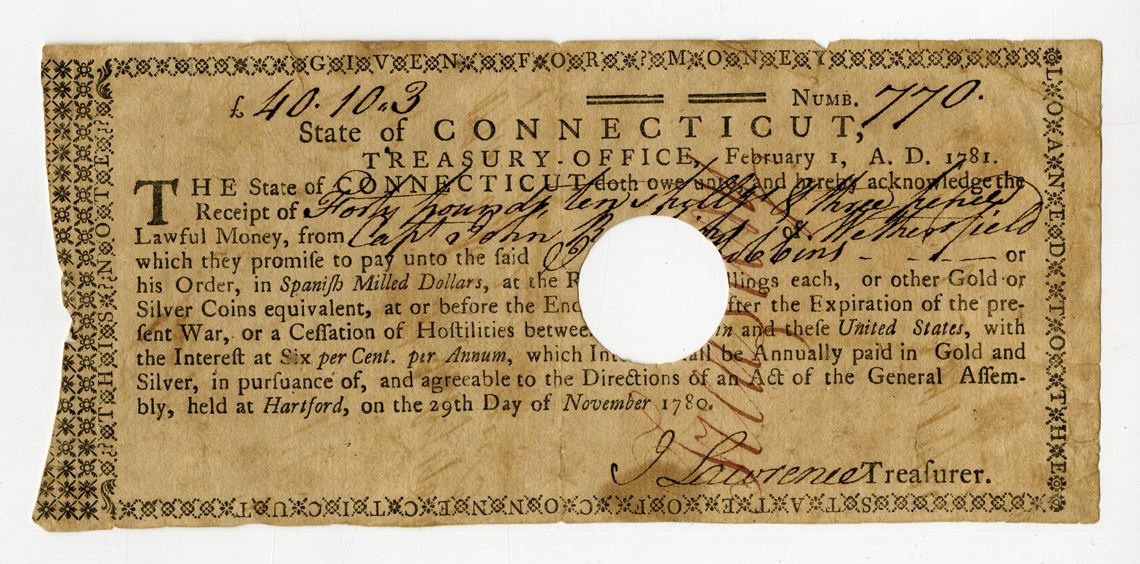 THIS NOTE
GIVEN FOR MONEY
LOANED TO THE
STATE OF CONNECTICUT
£ 40. 10. 3 NUMB. 770.
State of CONNECTICUT,
TREASURY-OFFICE, February 1, A. D. 1781.
THE State of CONNECTICUT doth owe unto, and hereby acknowledge the
Receipt of Forty pounds, ten shills & three pence
Lawful Money, from Capt John of Wethersfield
which they promise to pay unto the said or
his Order, in Spaniſh Milled Dollars, at the lings each, or other Gold or
Silver Coins equivalent, at or before the End fter the Expiration of the pre-
ſent War, or a Ceſſation of Hoſtilities betwee in and theſe United States, with
the Intereſt at Six per Cent. per Annum, which Int all be Annually paid in Gold and
Silver, in purſuance of, and agreeable to the Directions of an Act of the General Aſſem-
bly, held at Hartford, on the 29th Day of November 1780.
J Lawrence Treaſurer.